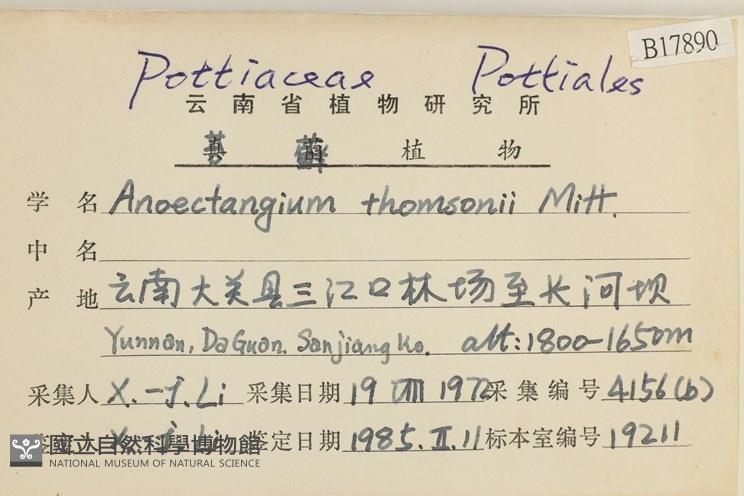 B17890
Pottiaceae Pottiales
云南省植物研究所
植物
学名 Anoectangium thomsonii Mitt.
中名
产地 云南大关县三江口林场至长河坝
Yunnan, DaGuan. Sanjiang Ko. alt: 1800-1650m
采集人 X.-J. Li 采集日期 19 VIII 1972 采集编号 4156(b)
鉴定日期 1985.II.11 标本室编号 19211
國立自然科學博物館
NATIONAL MUSEUM OF NATURAL SCIENCE